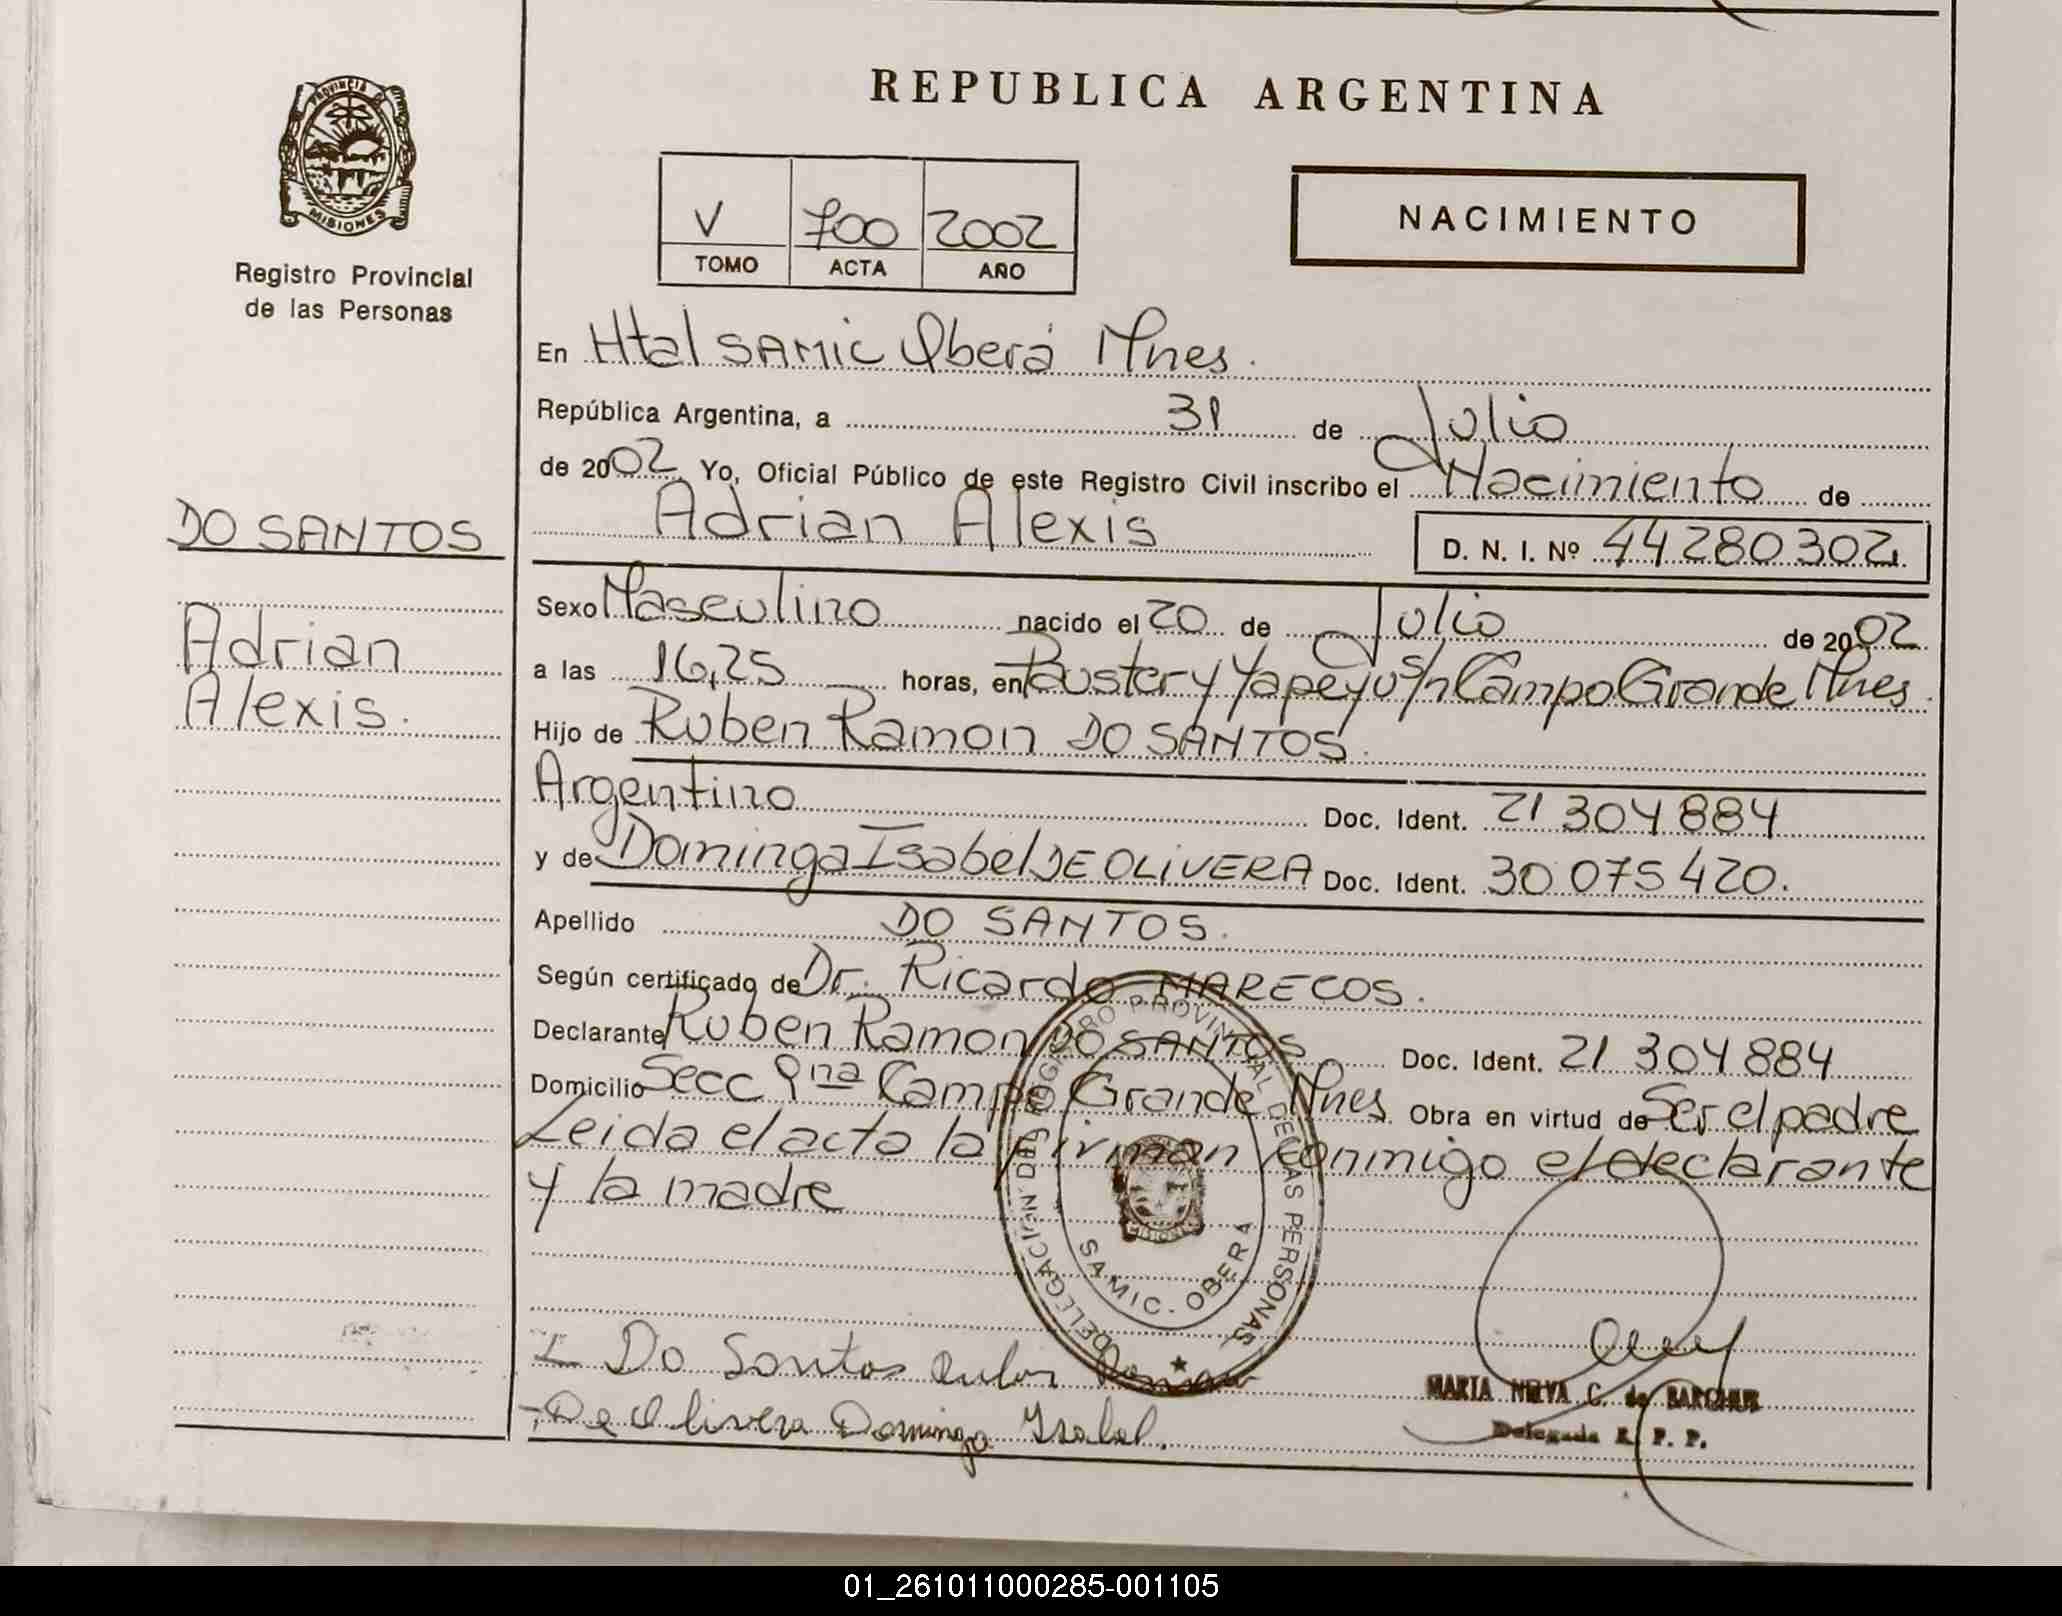 REPUBLICA ARGENTINA
PROVINCIA DE
MISIONES
Registro Provincial
de las Personas
V 700 2002
TOMO ACTA AÑO
NACIMIENTO
En Htal SAMIC Oberá Mnes.
República Argentina, a 31 de Julio
de 2002 Yo, Oficial Público de este Registro Civil inscribo el Nacimiento de
Adrian Alexis D. N. I. Nº 44280302
DO SANTOS
Adrian
Alexis.
Sexo Masculino nacido el 20 de Julio de 2002
a las 16,25 horas, en y Yapeyu s/n Campo Grande Mnes.
Hijo de Ruben Ramon DO SANTOS.
Argentino Doc. Ident. 21 304 884
y de Dominga Isabel DE OLIVERA Doc. Ident. 30 075 420.
Apellido DO SANTOS.
Según certificado de Dr. Ricardo MARECOS.
Declarante Ruben Ramon DO SANTOS Doc. Ident. 21 304 884
Domicilio Secc 9na Campo Grande Mnes Obra en virtud de Ser el padre
Leida el acta la firman conmigo el declarante
y la madre
DELEGACION DEL REGISTRO PROVINCIAL DE LAS PERSONAS
SAMIC - OBERA
MISIONES
Do Santos Ruben Ramon
De Olivera Dominga Isabel.
MARIA C. de
Delegada R. P. P.
01_261011000285-001105